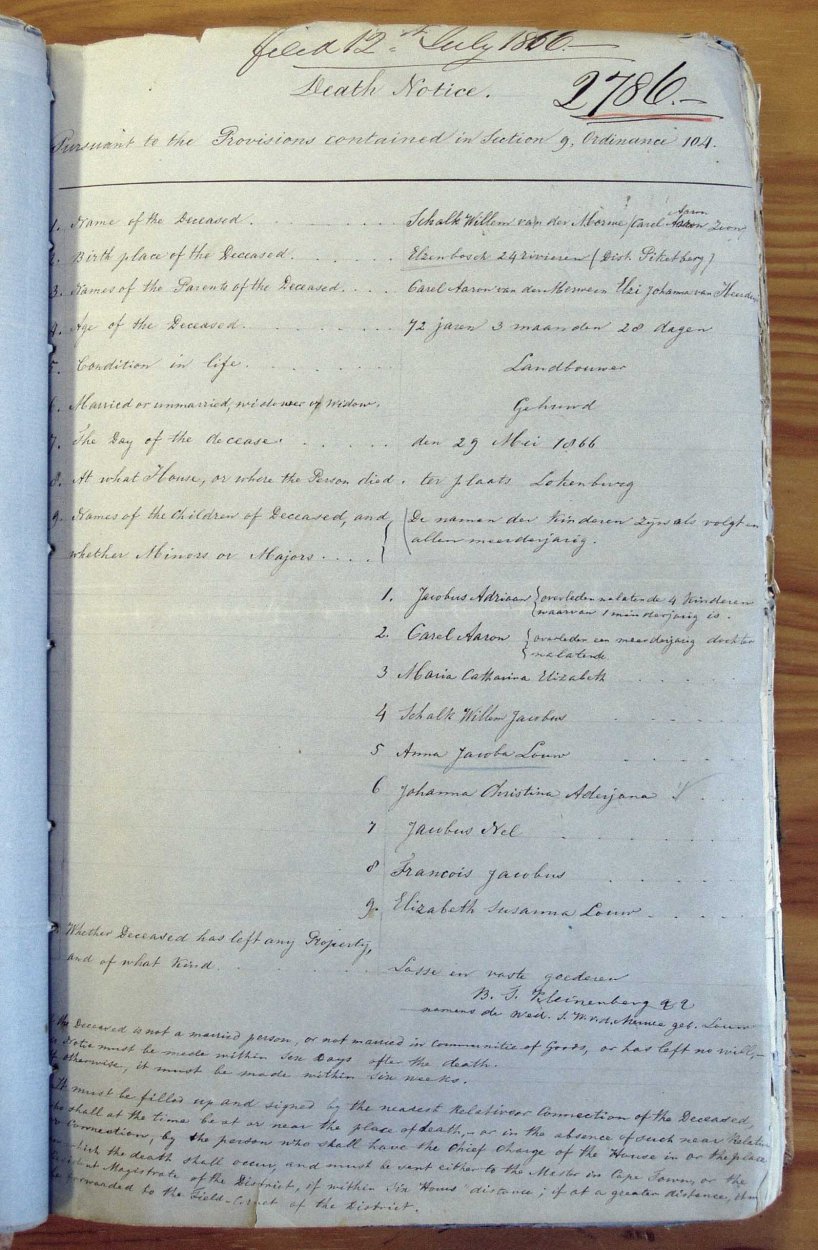 filed 12th July 1866.—
Death Notice.
2786.—
Pursuant to the Provisions contained in Section 9. Ordinance 104.
1. Name of the Deceased . . . . . Schalk Willem van der Merwe (Carel Aaron Zoon)
2. Birth place of the Deceased . . . . . Elzenbosch 24 rivieren (Dist. Piketberg)
3. Names of the Parents of the Deceased . . . . Carel Aaron van der Merwe en Elzi Johanna van Heerden
4. Age of the Deceased . . . . . 72 jaren 3 maanden 28 dagen
5. Condition in life . . . . . Landbouwer
6. Married or unmarried, widower or Widow. Gehuwd
7. The Day of the decease . . . . . den 29 Mei 1866
8. At what House, or where the Person died. ter plaats Lokenburg
9. Names of the Children of Deceased, and { (De namen der Kinderen zijn als volgt en
whether Minors or Majors . . . . allen meerderjarig.
1. Jacobus Adriaan { overleden nalatende 4 Kinderen
waarvan 1 minderjarig is.
2. Carel Aaron { overleden een meerderjarig dochter
nalatende.
3 Maria Catharina Elizabeth
4 Schalk Willem Jacobus
5 Anna Jacoba Louw
6 Johanna Christina Aderjana
7 Jacobus Nel
8 Francois Jacobus
9. Elizabeth Susanna Louw
Whether Deceased has left any Property,
and of what Kind . . . . . Losse en vaste goederen
B. J. Kleinenberg q q
namens de Wed. S. W. v. d. Merwe geb. Louw
If the Deceased is not a married person, or not married in Communitie of Goods, or has left no will,—
Notice must be made within Six Days after the death.
If otherwise, it must be made within Six weeks.
It must be filled up and signed by the nearest Relative or Connection of the Deceased,
who shall at the time be at or near the place of death,— or in the absence of such near Relative
or Connections, by the person who shall have the Chief charge of the House in or the place
in which the death shall occur, and must be sent either to the Master in Cape Town, or the
Resident Magistrate of the District, if within Six Hours distance; if at a greater distance, then
be forwarded to the Field-Cornet of the District.